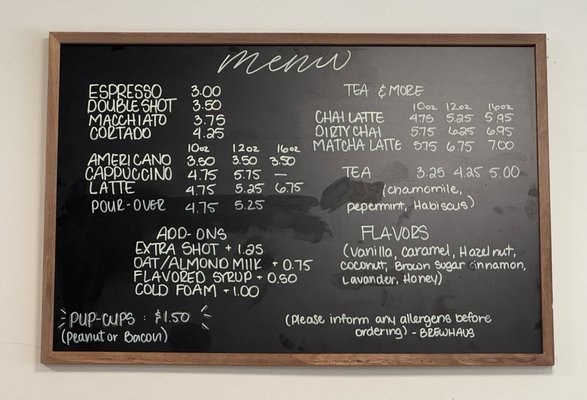 menu
ESPRESSO 3.00
DOUBLE SHOT 3.50
MACCHIATO 3.75
CORTADO 4.25
10oz 12oz 16oz
AMERICANO 3.50 3.50 3.50
CAPPUCCINO 4.75 5.75 —
LATTE 4.75 5.25 6.75
POUR-OVER 4.75 5.25
ADD-ONS
EXTRA SHOT + 1.25
OAT/ALMOND MILK + 0.75
FLAVORED SYRUP + 0.50
COLD FOAM + 1.00
PUP-CUPS : $1.50
(Peanut or Bacon)
TEA & MORE
10oz 12oz 16oz
CHAI LATTE 4.75 5.25 5.95
DIRTY CHAI 5.75 6.25 6.95
MATCHA LATTE 5.75 6.75 7.00
TEA 3.25 4.25 5.00
(chamomile,
pepermint, Habiscus)
FLAVORS
(Vanilla, caramel, Hazelnut,
coconut, Brown sugar cinnamon,
Lavander, Honey)
(Please inform any allergens before
ordering) - BREWHAUS